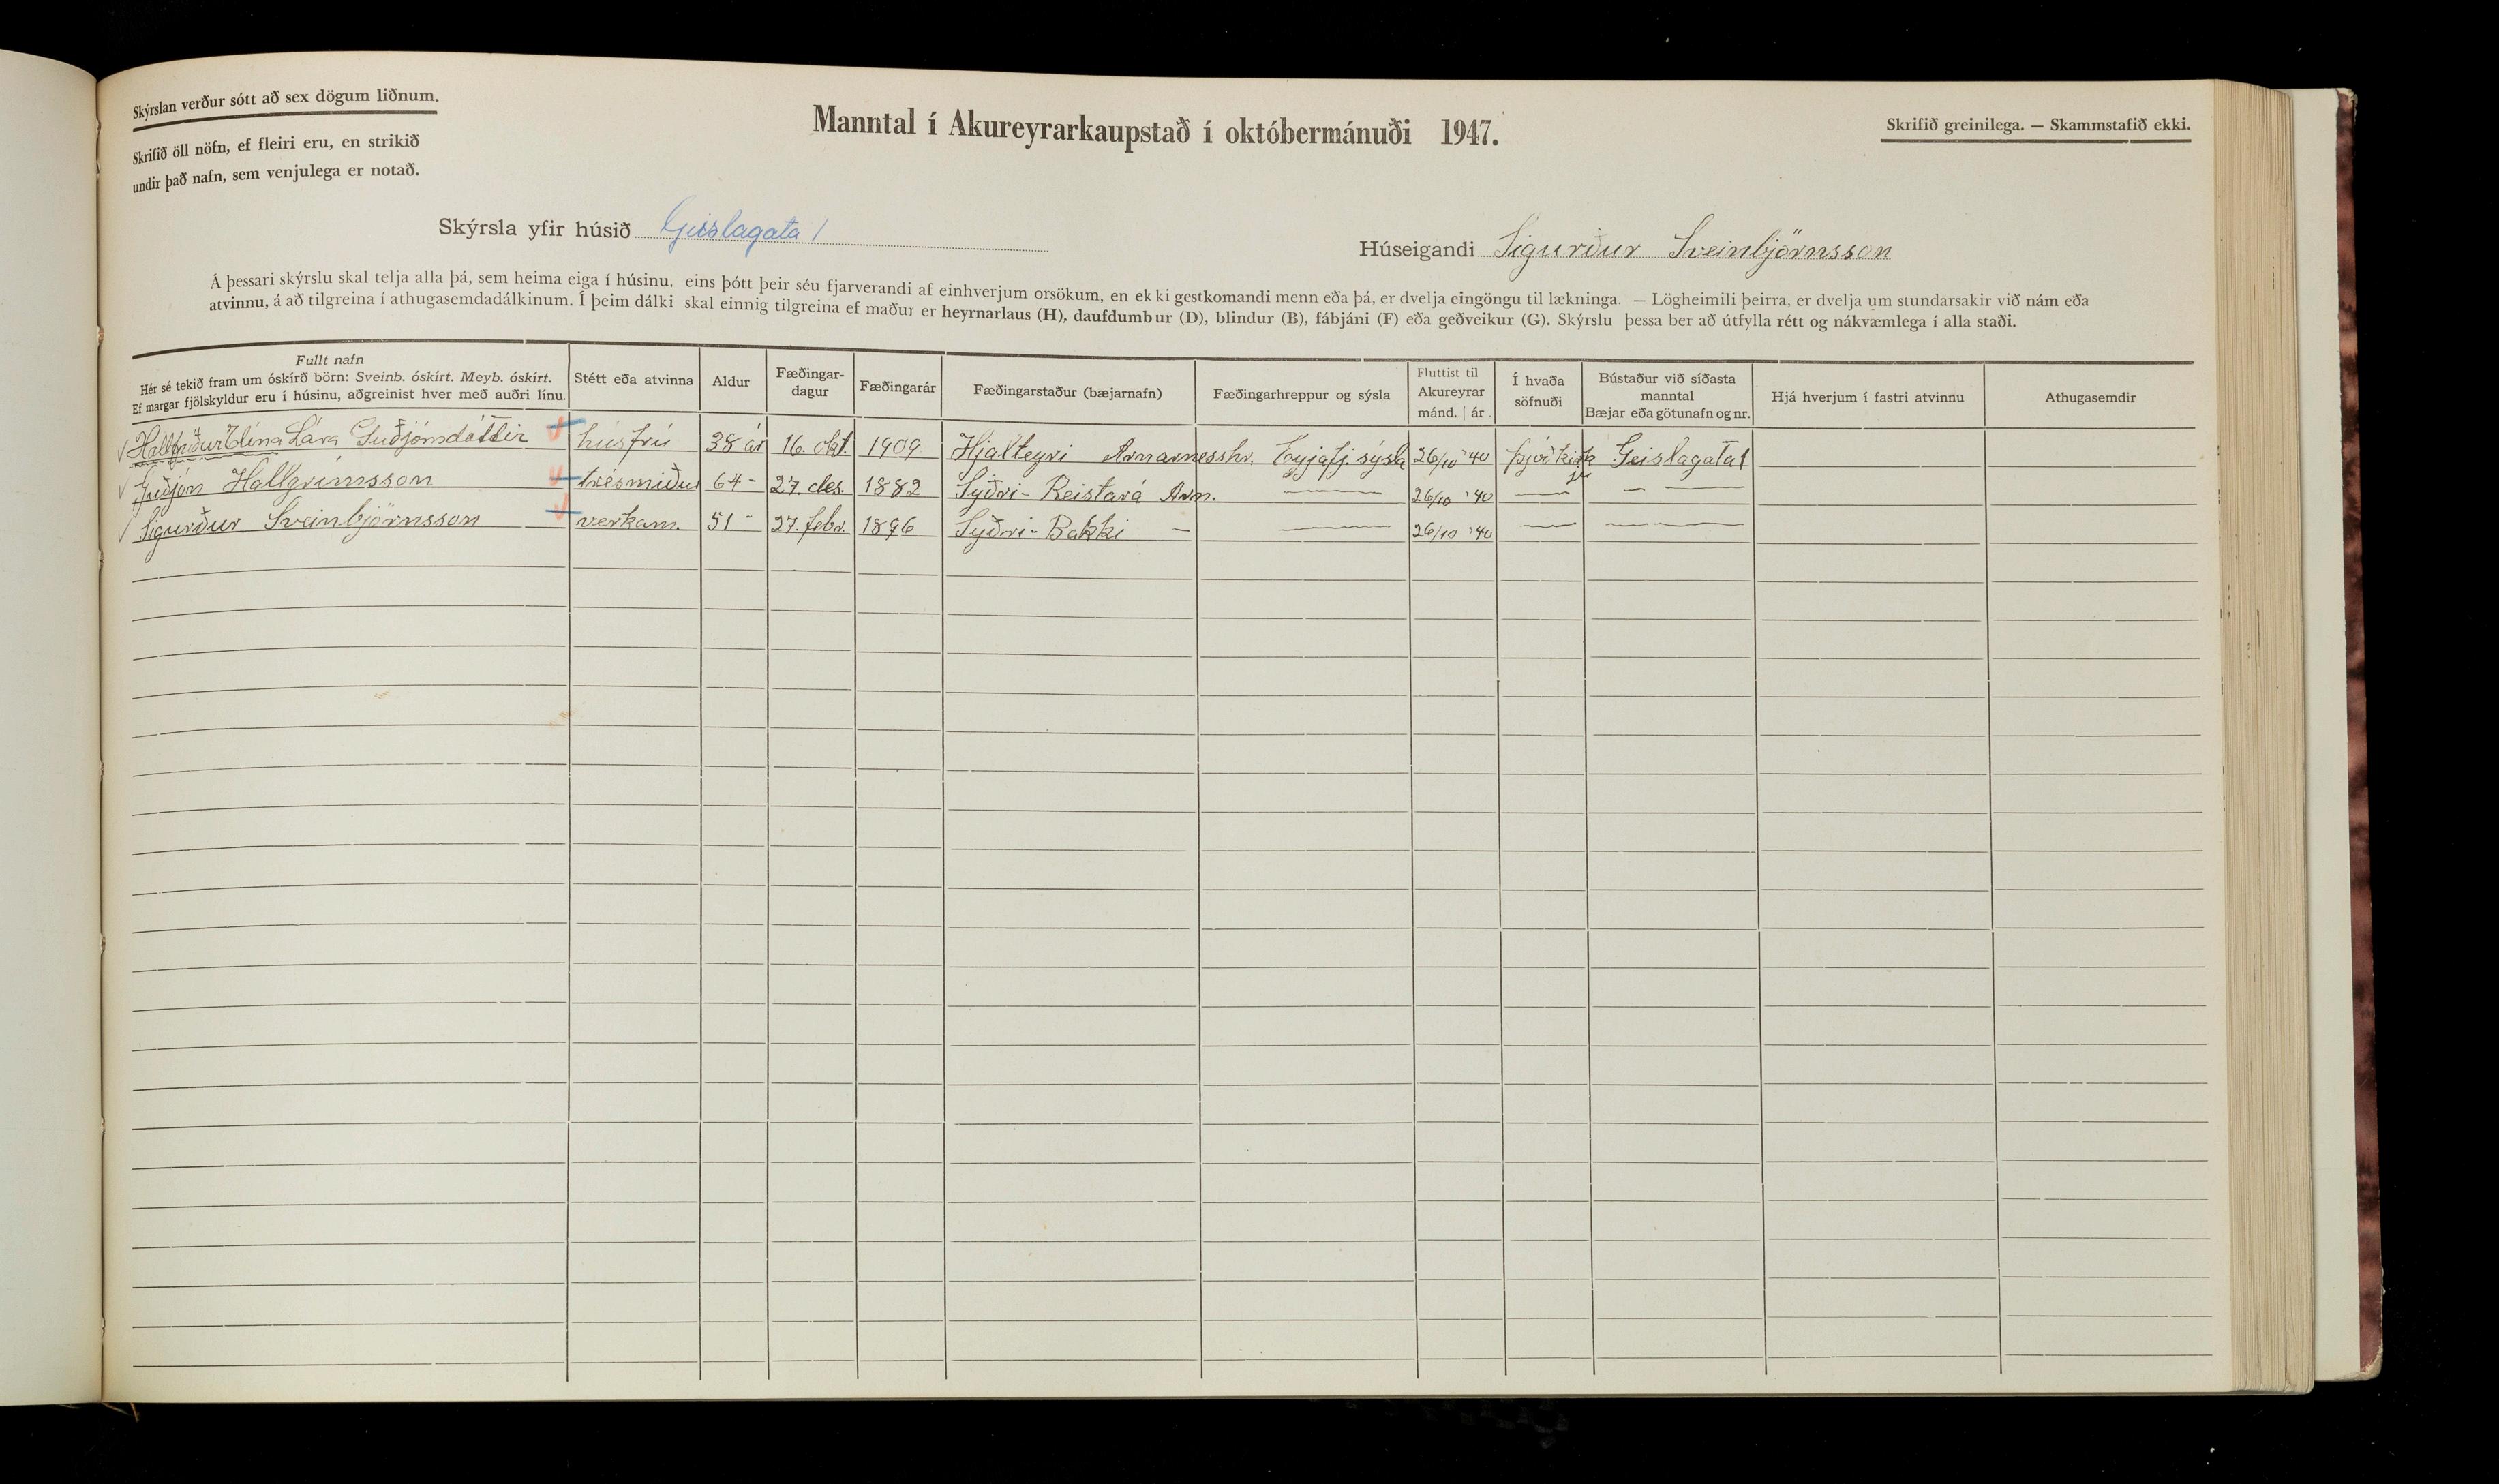 Skýrslan verður sótt að sex dögum liðnum.
Skrifið öll nöfn, ef fleiri eru, en strikið
undir það nafn, sem venjulega er notað.
Manntal í Akureyrarkaupstað í októbermánuði 1947.
Skrifið greinilega. — Skammstafið ekki.
Skýrsla yfir húsið Geislagata 1
Húseigandi Sigurður Sveinbjörnsson
Á þessari skýrslu skal telja alla þá, sem heima eiga í húsinu, eins þótt þeir séu fjarverandi af einhverjum orsökum, en ekki gestkomandi menn eða þá, er dvelja eingöngu til lækninga. — Lögheimili þeirra, er dvelja um stundarsakir við nám eða
atvinnu, á að tilgreina í athugasemdadálkinum. Í þeim dálki skal einnig tilgreina ef maður er heyrnarlaus (H), daufdumbur (D), blindur (B), fábjáni (F) eða geðveikur (G). Skýrslu þessa ber að útfylla rétt og nákvæmlega í alla staði.
Fullt nafn
Hér sé tekið fram um óskírð börn: Sveinb. óskírt. Meyb. óskírt.
Ef margar fjölskyldur eru í húsinu, aðgreinist hver með auðri línu.
Stétt eða atvinna
Aldur
Fæðingar-
dagur
Fæðingarár
Fæðingarstaður (bæjarnafn)
Fæðingarhreppur og sýsla
Fluttist til
Akureyrar
mánd. | ár
Í hvaða
söfnuði
Bústaður við síðasta
manntal
Bæjar eða götunafn og nr.
Hjá hverjum í fastri atvinnu
Athugasemdir
Hallfríður Elína Lára Guðjónsdóttir húsfrú 38 ár 16. okt. 1909 Hjalteyri Arnarnesshr. Eyjafj. sýsla 26/10 '40 þjóðkirk Geislagata 1
Guðjón Hallgrímsson trésmiður 64 - 27. des. 1882 Syðri-Reistará Arn. — 26/10 '40 — — —
Sigurður Sveinbjörnsson verkam. 51 - 27. febr. 1896 Syðri-Bakki — — 26/10 '40 — — —